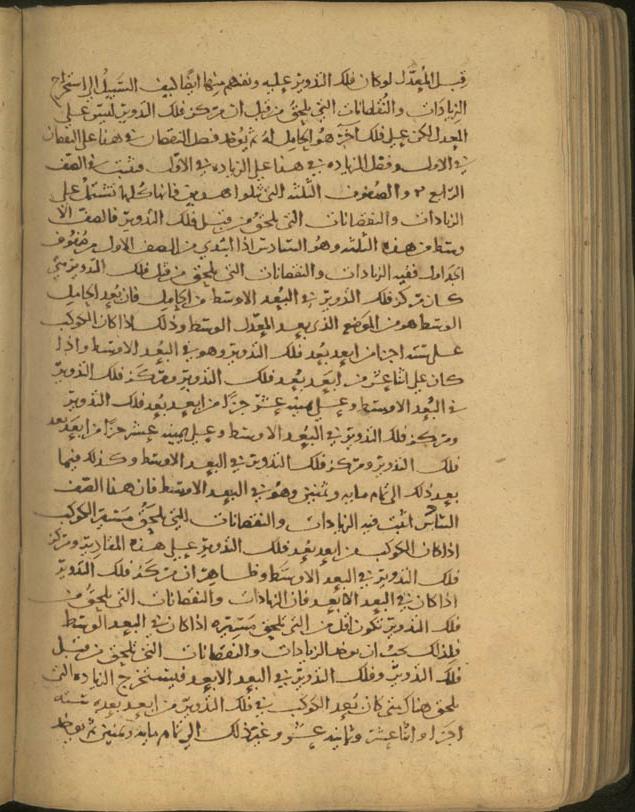 قبل المعدل لو كان فلك التدوير عليه ونفهم منها ايضا كيف السبيل الى استخراج
الزيادات والنقصانات التي تلحق من قبل ان مركز فلك التدوير ليس على
المعدل لكن على فلك اخر هو الحامل له ثم يوخذ فضل النقصان في هذا على النقصان
في الاول وفضل الزياده في هذا على الزياده في الاول فتثبت في الصف
الرابع والصفوف الثلثه التي تتلوا هذين فانها كلها تشتمل على
الزيادات والنقصانات التي تلحق من قبل فلك التدوير فالصف الا
وسط من هذه الثلثه وهو السادس اذا ابتدي من الصف الاول من صفوف
الجداول ففيه الزيادات والنقصانات التي تلحق من قبل فلك التدوير متى
كان مركز فلك التدوير في البعد الاوسط من الحامل فان بعد الحامل
الوسط هو من الموضع الذي بعد المعدل الوسط وذلك اذا كان الكوكب
على سته اجزا من ابعد بعد فلك التدوير وهو في البعد الاوسط واذا
كان على اثنا عشر من ابعد بعد فلك التدوير ومركز فلك التدوير
في البعد الاوسط وعلى ثمنيه عشر جزا من ابعد بعد فلك التدوير
ومركز فلك التدوير في البعد الاوسط وعلى ثمنيه عشر جزا من ابعد بعد
فلك التدوير ومركز فلك التدوير في البعد الاوسط وكذلك فيما
بعد ذلك الى تمام مايه وثمنين وهو في البعد الاوسط فان هذا الصف
السادس اثبت فيه الزيادات والنقصانات التي تلحق مسير الكوكب
اذا كان الكوكب من ابعد بعد فلك التدوير على هذه المقادير ومركز
فلك التدوير في البعد الاوسط وظاهر ان مركز فلك التدوير
اذا كان في البعد الابعد فان الزيادات والنقصانات التي تلحق من
فلك التدوير تكون اقل من التي تلحق مسيره اذا كان في البعد الوسط
فلذلك يجب ان يوخذ الزيادات والنقصانات التي تلحق من قبل
فلك التدوير وفلك التدوير في البعد الابعد فيستخرج الزياده التي
تلحق هناك متى كان بعد الكوكب في فلك التدوير من ابعد بعده سته
اجزا واثنا عشر وثمانيه عشر وغير ذلك الى تمام مايه وثمنين ثم يوخذ